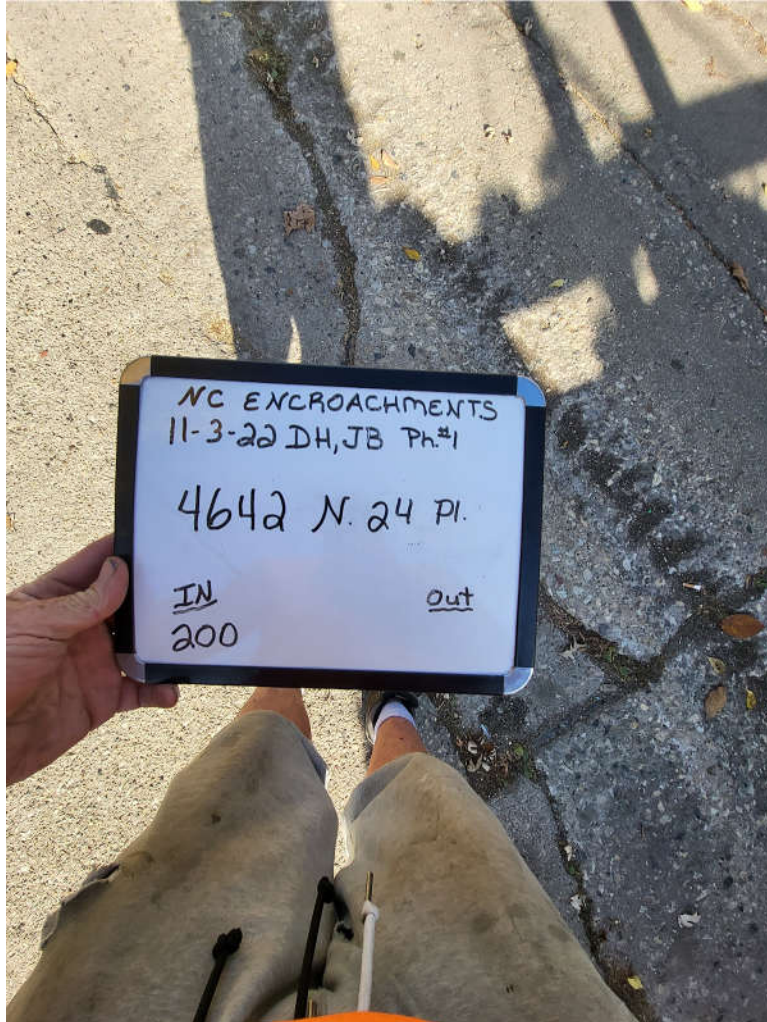 NC ENCROACHMENTS
11-3-22 DH, JB Ph.#1
4642 N. 24 Pl.
IN Out
200